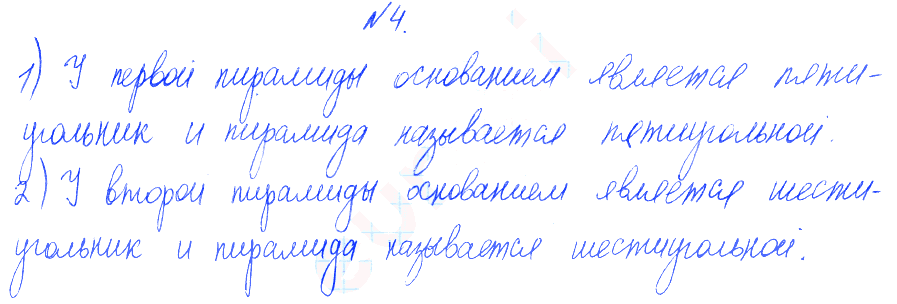 №4.
1) У первой пирамиды основанием является пяти-
угольник и пирамида называется пятиугольной.
2) У второй пирамиды основанием является шести-
угольник и пирамида называется шестиугольной.